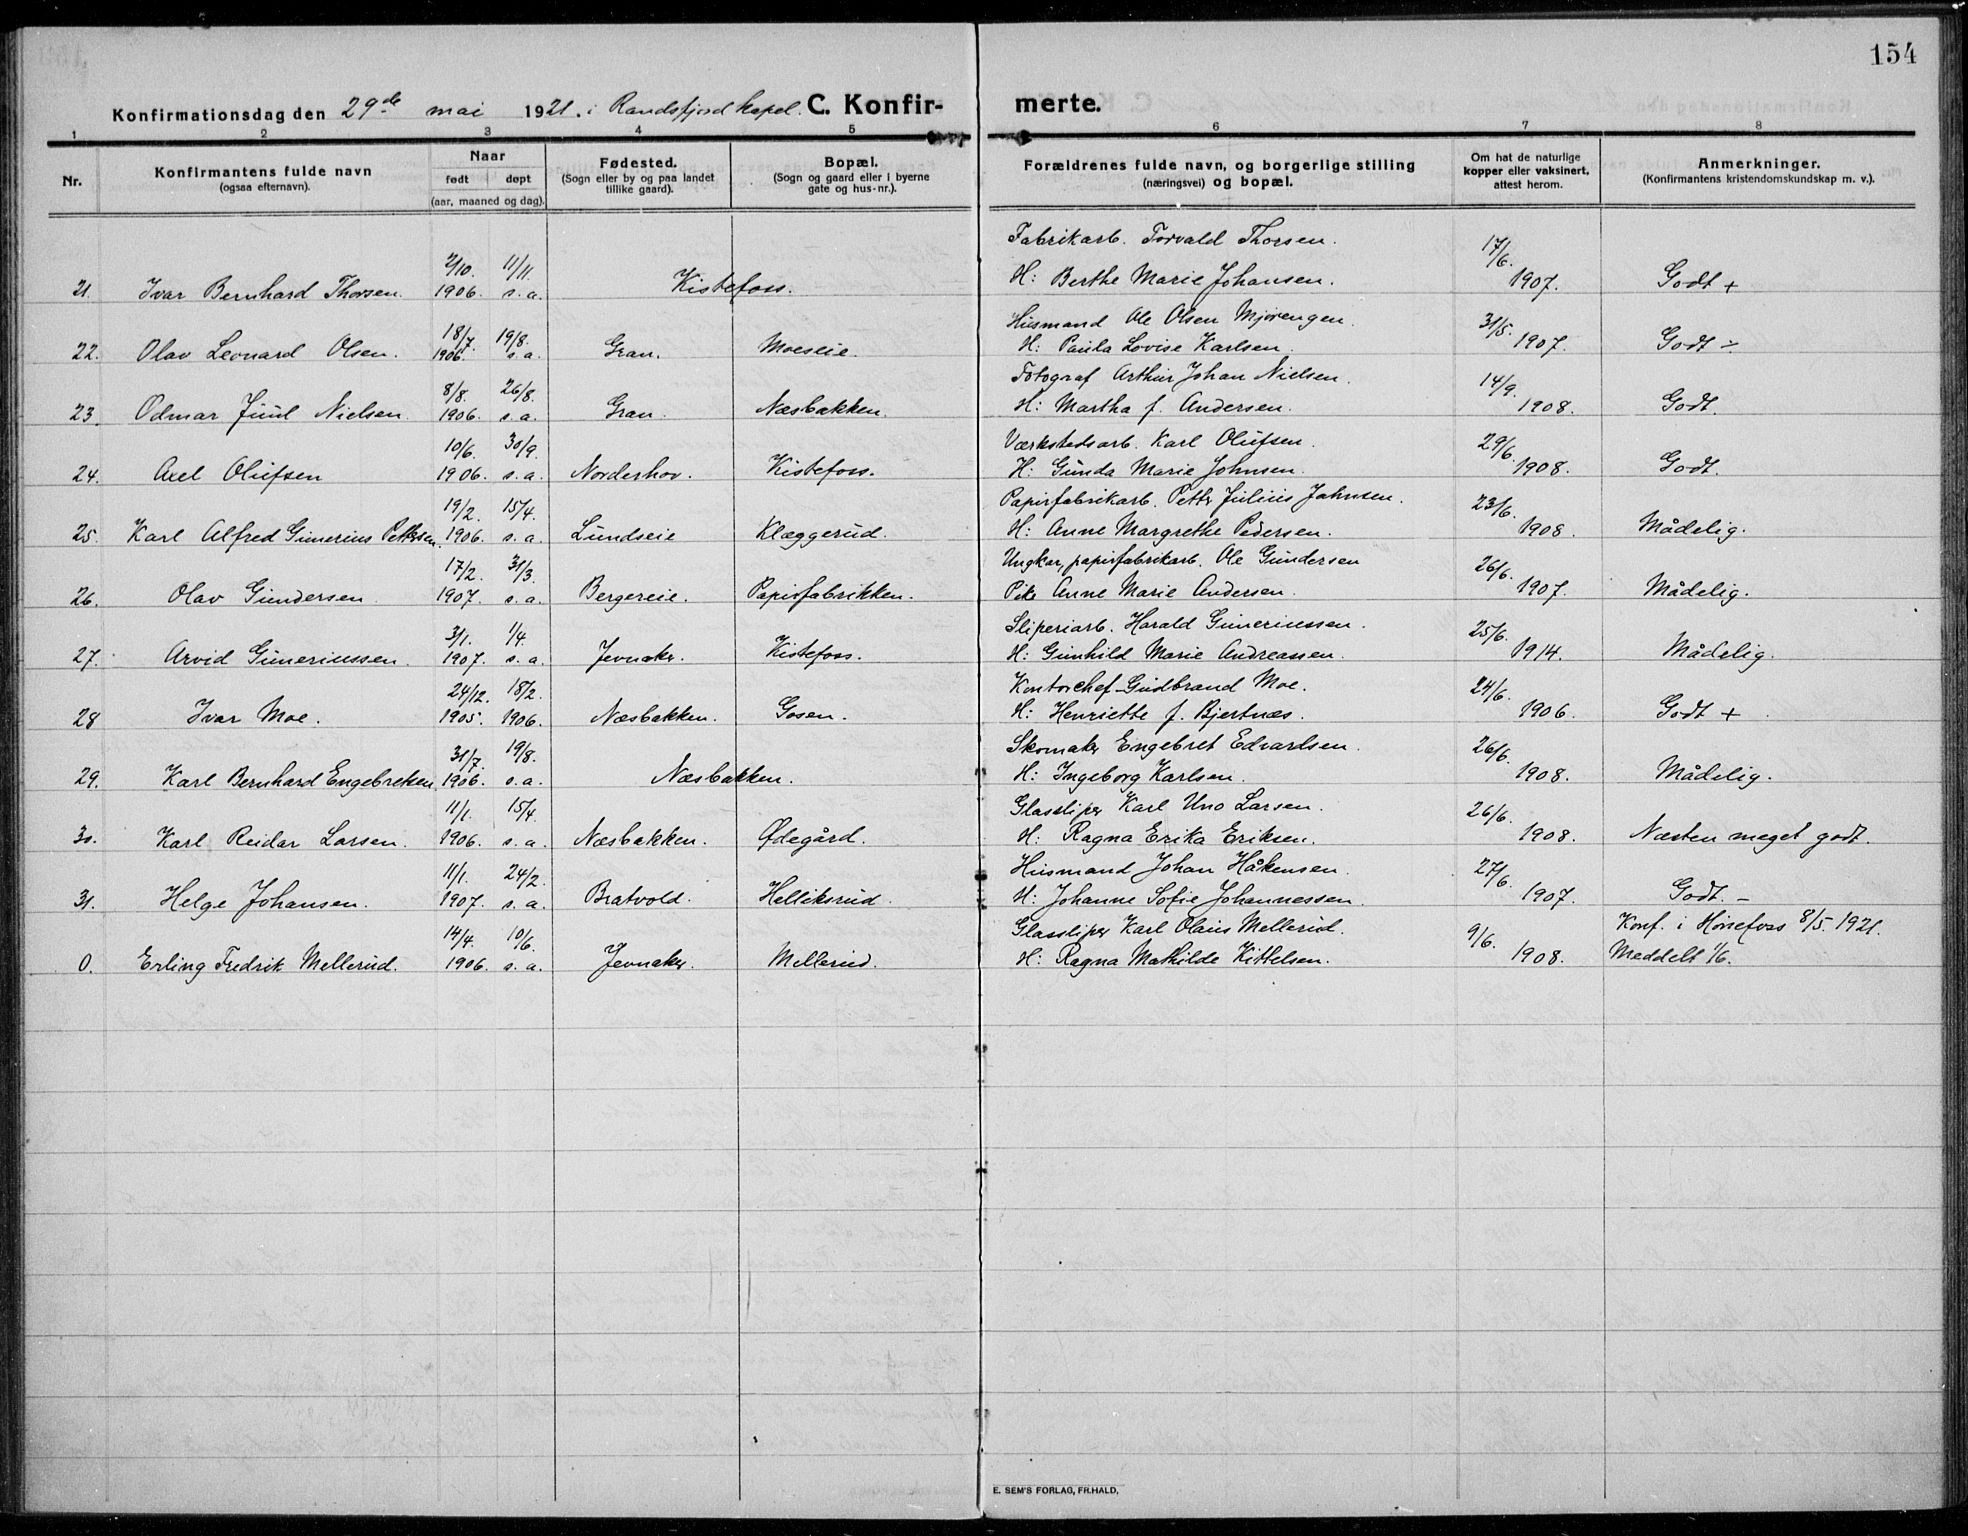 154
Konfirmationsdag den 29de mai 1921. i Randsfjord kapel. C. Konfir- merte.
1 2 3 4 5 6 7 8
Nr. Konfirmantens fulde navn (ogsaa efternavn). Naar født døpt (aar, maaned og dag). Fødested. (Sogn eller by og paa landet tillike gaard). Bopæl. (Sogn og gaard eller i byerne gate og hus-nr.). Forældrenes fulde navn, og borgerlige stilling (næringsvei) og bopæl. Om hat de naturlige kopper eller vaksinert, attest herom. Anmerkninger. (Konfirmantens kristendomskundskap m. v.).
2/10. 11/11. Fabrikarb. Torvald Thorsen. 17/6.
21. Ivar Bernhard Thorsen. 1906. s. a. Kistefoss. H: Berthe Marie Johansen. 1907. Godt +
18/7. 19/8. Husmand Ole Olsen Mjørengen. 31/5.
22. Olav Leonard Olsen. 1906. s. a. Gran. Moeseie. H: Paula Lovise Karlsen. 1907. Godt ÷
8/8. 26/8. Fotograf Arthur Johan Nielsen. 14/9.
23. Odmar Juul Nielsen. 1906. s. a. Gran. Næsbakken. H: Martha f. Andersen. 1908. Godt.
10/6. 30/9. Værkstedsarb. Karl Olufsen. 29/6.
24. Axel Olufsen 1906. s. a. Norderhov. Kistefoss. H: Gunda Marie Johnsen. 1908. Godt.
19/2. 15/4. Papirfabrikarb. Petter Julius Jahnsen. 23/6.
25. Karl Alfred Gunerius Pettersen. 1906. s. a. Lundseie Klæggerud. H: Anne Margrethe Pedersen. 1908. Mådelig.
17/2. 31/3. Ungkar, papirfabrikarb. Ole Gundersen 26/6.
26. Olav Gundersen. 1907. s. a. Bergereie. Papirfabrikken. Pike Anne Marie Andersen. 1907. Mådelig.
3/1. 1/4. Sliperiarb. Harald Gunerinssen. 25/6.
27. Arvid Guneriussen. 1907. s. a. Jevnaker. Kistefoss. H: Gunhild Marie Andreassen. 1914. Mådelig.
24/12. 18/2. Kontorchef Gudbrand Moe. 24/6.
28 Ivar Moe. 1905. 1906. Næsbakken. Gosen. H: Henriette f. Bjertnæs. 1906. Godt +
31/7. 19/8. Skomaker Engebret Edvartsen. 26/6.
29. Karl Bernhard Engebretsen. 1906. s. a. Næsbakken. H: Ingeborg Karlsen. 1908. Mådelig.
11/1. 15/4. Glassliper Karl Uno Larsen. 26/6.
30. Karl Reidar Larsen. 1906. s. a. Næsbakken. Ødegård. H: Ragna Erika Eriksen. 1908. Næsten meget godt.
11/1. 24/2. Husmand Johan Håkensen. 27/6.
31. Helge Johansen. 1907. s. a. Bratvold. Helliksrud. H: Johanne Sofie Johannessen. 1907. Godt. –
14/4. 10/6. Glassliper Karl Olaus Mellerud. 9/6. Konf. i Hønefoss 8/5. 1921.
0. Erling Fredrik Mellerud. 1906. s. a. Jevnaker. Mellerud. H: Ragna Mathilde Kittelsen. 1908. Meddelt 1/6.
E. SEM'S FORLAG, FR.HALD,